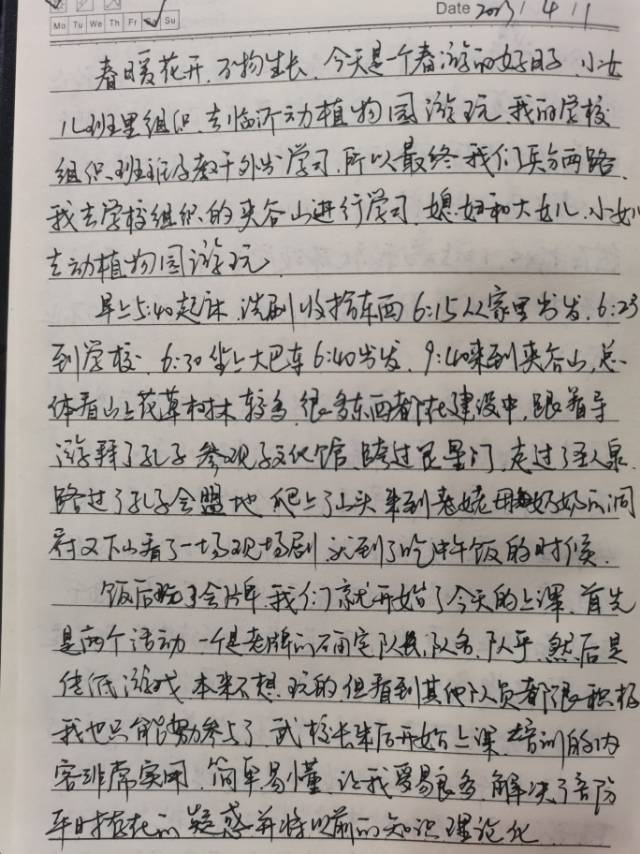 Mo Tu We Th Fr Sa Su
Date 2023 / 4 / 1
春暖花开，万物生长，今天是一个春游的好日子，小女
儿班里组织去临沂动植物园游玩，我的学校
组织班班子数干外出学习，所以最终我们兵分两路，
我去学校组织的夹谷山进行学习，媳妇和大女儿、小女儿
去动植物园游玩。
早上5:40起床，洗刷收拾东西6:15从家里出发，6:23
到学校，6:30坐上大巴车6:40出发，9:40来到夹谷山，总
体看山上花草树木较多，很多东西都在建设中，跟着导
游拜了孔子，参观了文化馆，跨过星门，走过了圣人泉，
路过了孔子会盟地，爬上了山头，来到老姥奶奶的洞
府又下山看了一场现场剧，就到了吃中午饭的时候。
饭后玩了会牌，我们就开始了今天的上课，首先
是两个活动，一个是老牌的确定队长、队名、队乎，然后是
传纸游戏，本来不想玩的，但看到其他队员都很积极
我也只能努力参与了，武校长来后开始上课，培训的内
容非常实用，简单易懂，让我受易良多，解决了部份
平时存在的疑惑并将以前的知识理论化。